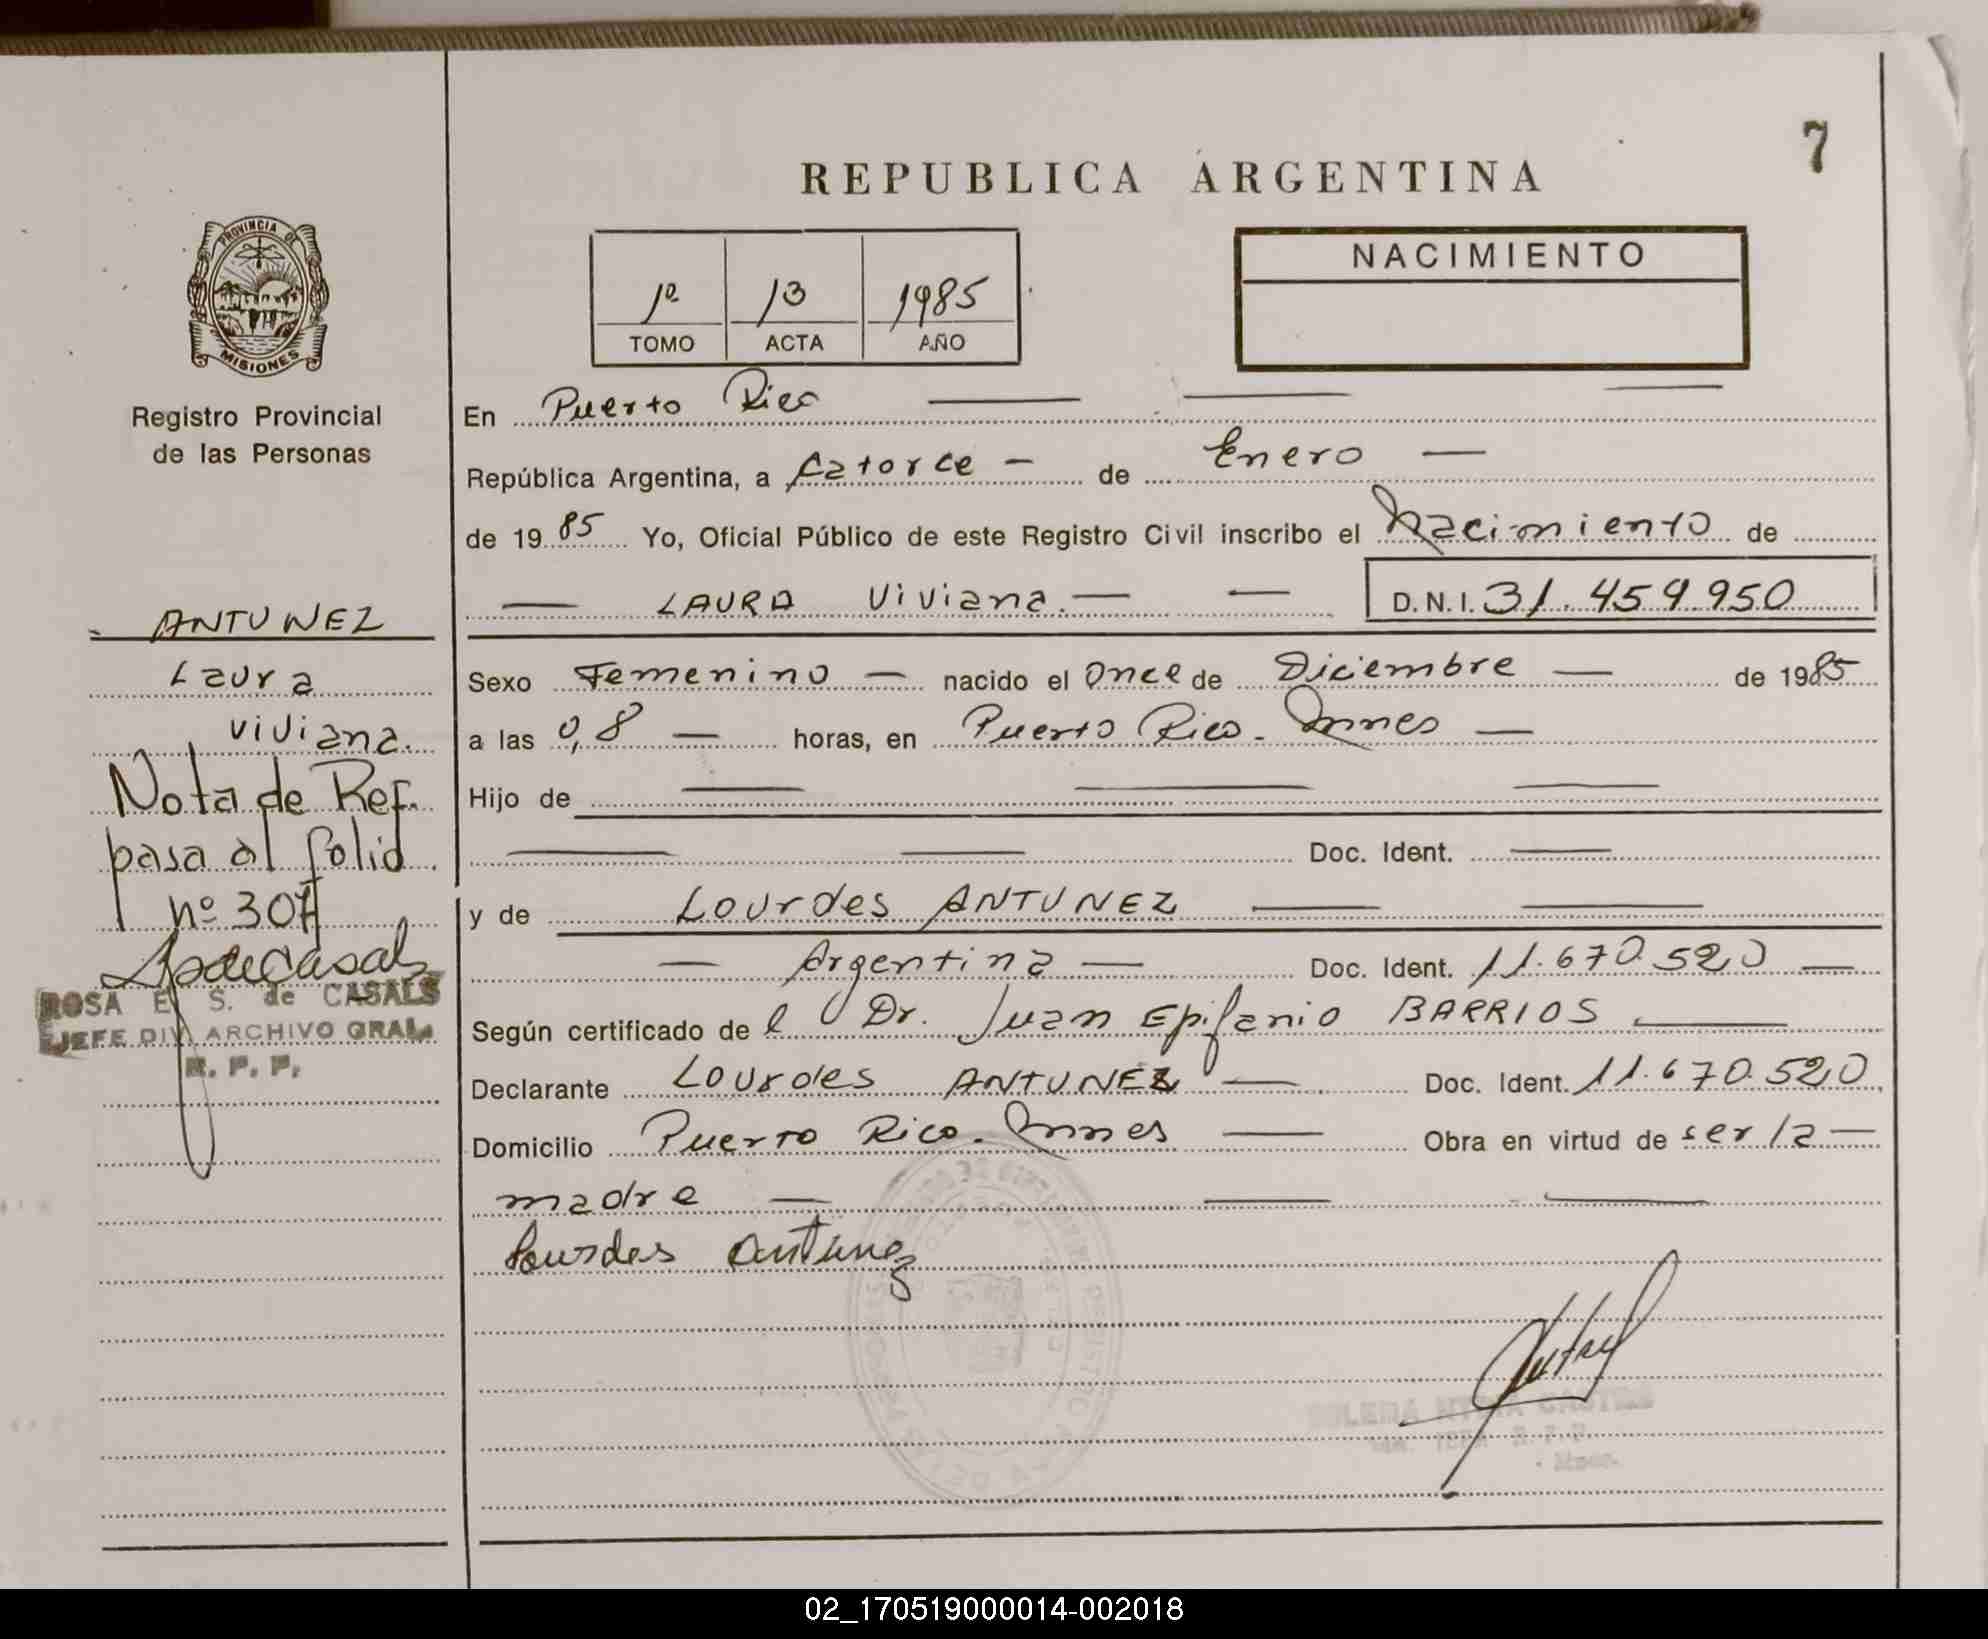 7
REPUBLICA ARGENTINA
PROVINCIA DE
MISIONES
Registro Provincial
de las Personas
1º 13 1985
TOMO ACTA AÑO
NACIMIENTO
En Puerto Rico
República Argentina, a Catorce - de Enero
de 1985 Yo, Oficial Público de este Registro Civil inscribo el Nacimiento de
LAURA Viviana.
D.N.I. 31.459.950
ANTUNEZ
Laura
Viviana.
Nota de Ref.
pasa al folio
nº 307
ROSA E. S. de CASALS
JEFE DIV. ARCHIVO GRAL.
R. P. P.
Sexo Femenino - nacido el Once de Diciembre - de 1985
a las 0,8 - horas, en Puerto Rico. Mnes -
Hijo de
Doc. Ident.
y de Lourdes ANTUNEZ
Argentina - Doc. Ident. 11.670.520
Según certificado de l Dr. Juan Epifanio BARRIOS
Declarante Lourdes ANTUNEZ - Doc. Ident. 11.670.520
Domicilio Puerto Rico. Mnes - Obra en virtud de ser la
madre
Lourdes Antunez
02_170519000014-002018